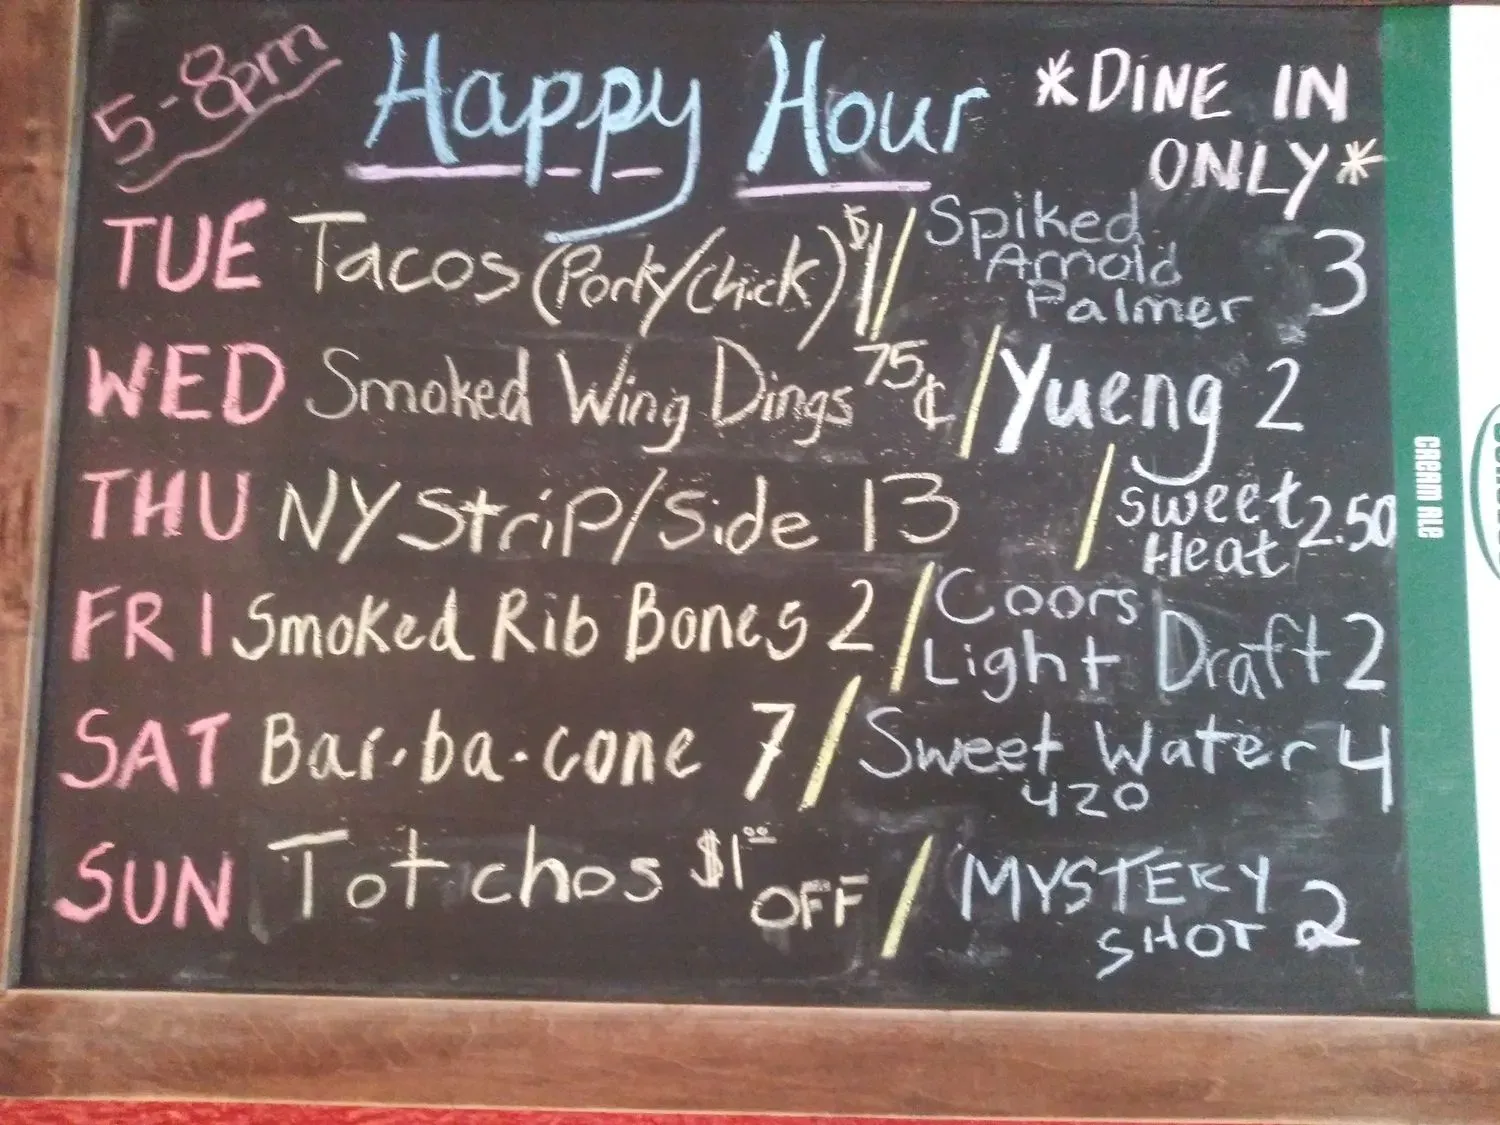 5-8pm Happy Hour *DINE IN ONLY*
TUE Tacos (Pork/Chick) $1 / Spiked Arnold Palmer 3
WED Smoked Wing Dings 75¢ / Yueng 2
THU NY Strip/Side 13 / Sweet Heat 2.50
FRI Smoked Rib Bones 2 / Coors Light Draft 2
SAT Bar·ba·cone 7 / Sweet Water 420 4
SUN Tot chos $1.00 OFF / MYSTERY SHOT 2
CREAM ALE